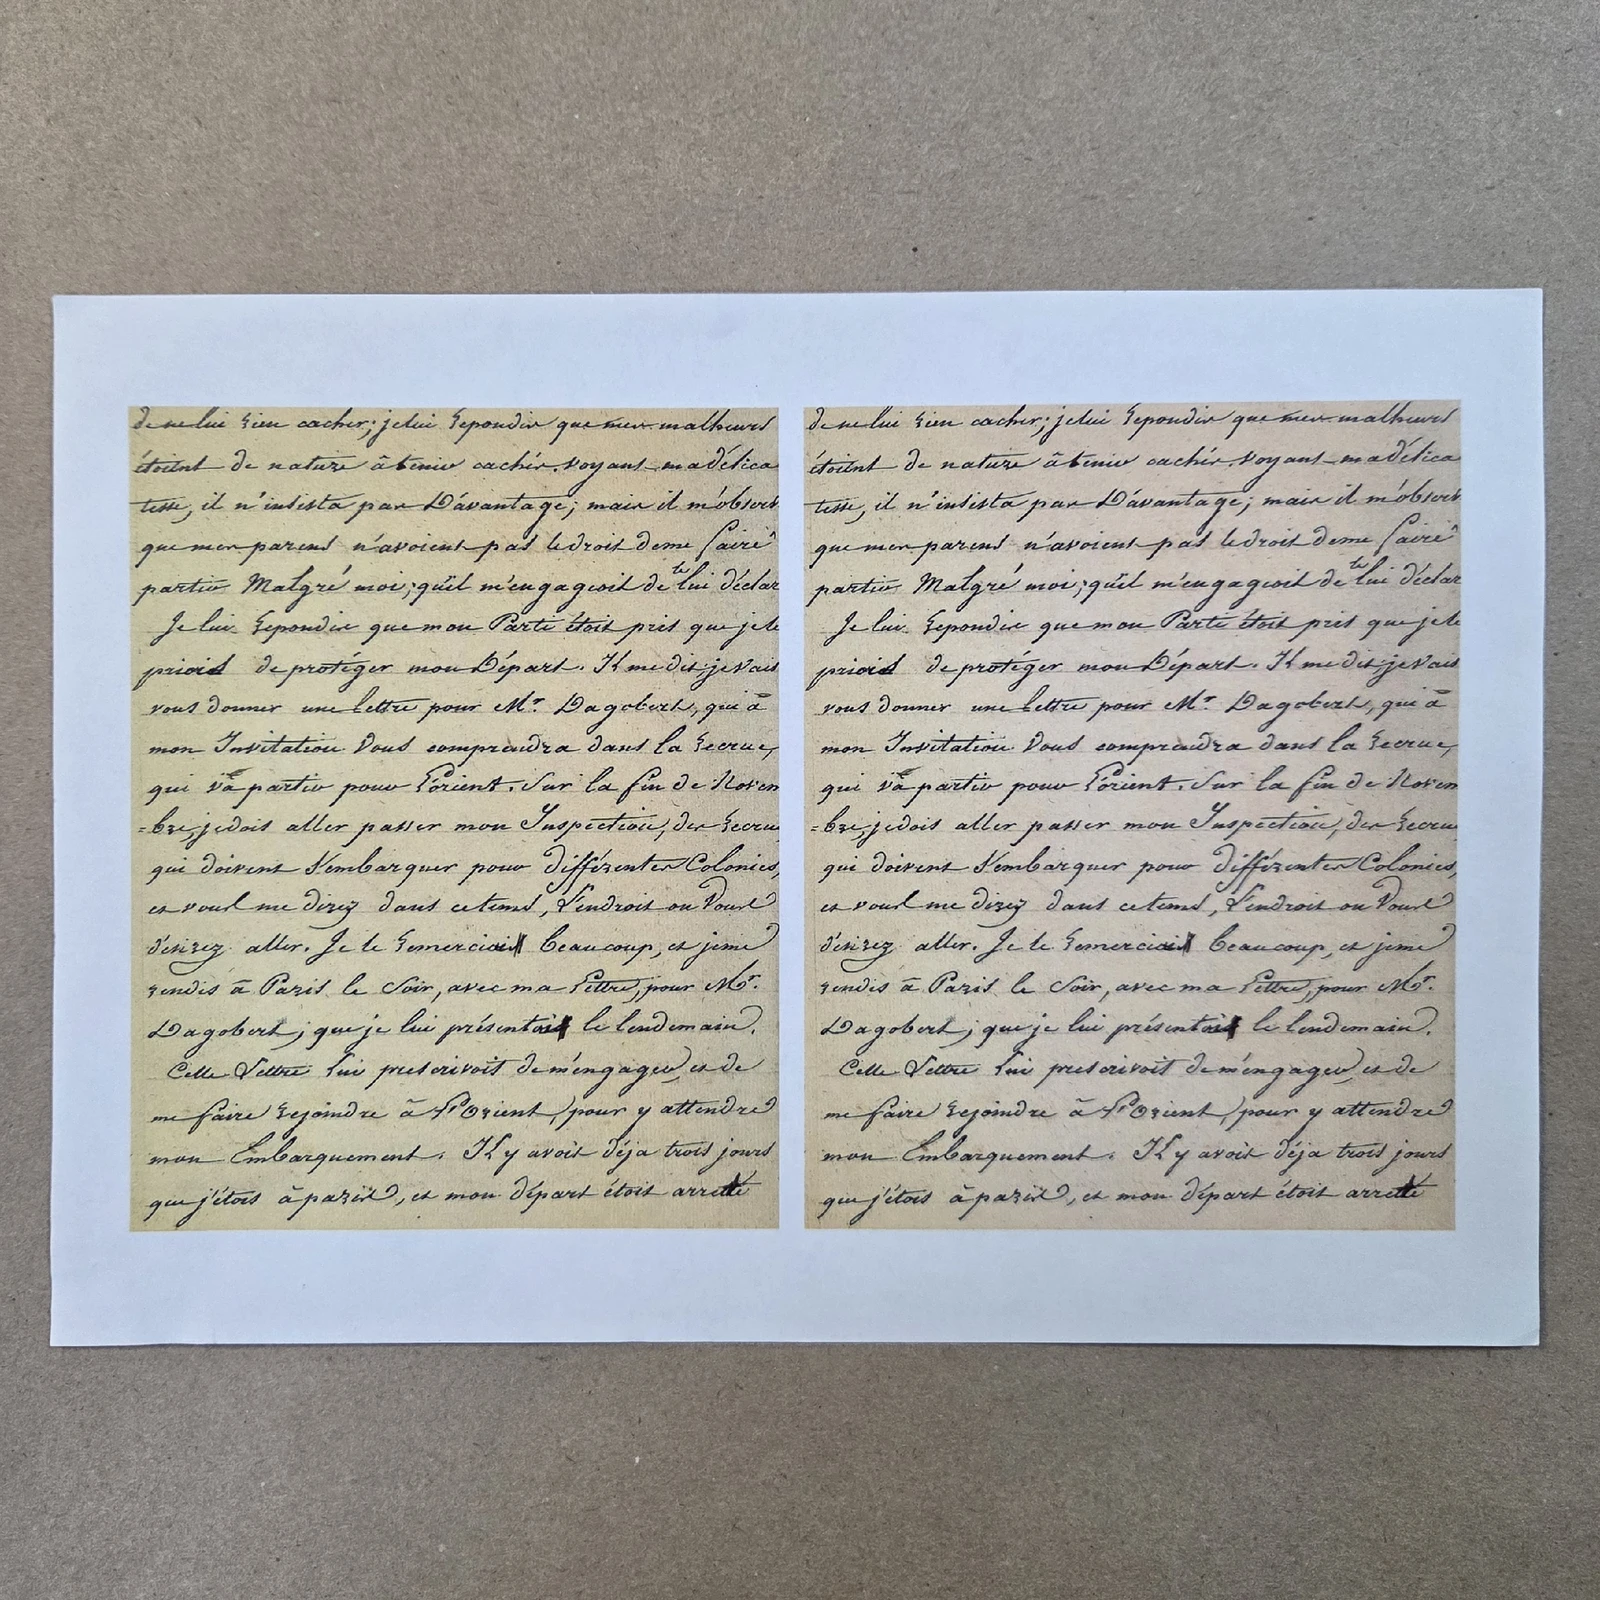 de ne lui rien cacher; je lui repondis que mes malheurs
étoient de nature à tenir cachés. voyant ma délica
tesse, il n'insista pas D'avantage; mais il m'observ
que mes parens n'avoient pas le droit de me faire
partir Malgré moi; qu'il m'engageoit de te lui déclar
Je lui repondis que mon Parti étoit pris que je le
priois de protéger mon Départ. Il me dit; je vais
vous donner une lettre pour Mr. Dagobert, qui à
mon Invitation Vous comprendra dans la recrue,
qui va partir pour L'orient. Sur la fin de Novem
=bre, je dois aller passer mon Inspection, des recrue
qui doivent s'embarquer pour différentes Colonies,
et vous me direz dans ce tems, L'endroit ou Vous
désirez aller. Je le remerciais beaucoup, et je me
rendis à Paris le Soir, avec ma Lettre, pour Mr.
Dagobert; que je lui présentois le lendemain.
Cette Lettre lui prescrivoit de m'engager, et de
me faire rejoindre à L'Orient, pour y attendre
mon Embarquement. Il y avoit déja trois jours
que j'étois à paris, et mon départ étoit arretté
de ne lui rien cacher; je lui repondis que mes malheurs
étoient de nature à tenir cachés. voyant ma délica
tesse, il n'insista pas D'avantage; mais il m'observ
que mes parens n'avoient pas le droit de me faire
partir Malgré moi; qu'il m'engageoit de te lui déclar
Je lui repondis que mon Parti étoit pris que je le
priois de protéger mon Départ. Il me dit; je vais
vous donner une lettre pour Mr. Dagobert, qui à
mon Invitation Vous comprendra dans la recrue,
qui va partir pour L'orient. Sur la fin de Novem
=bre, je dois aller passer mon Inspection, des recrue
qui doivent s'embarquer pour différentes Colonies,
et vous me direz dans ce tems, L'endroit ou Vous
désirez aller. Je le remerciais beaucoup, et je me
rendis à Paris le Soir, avec ma Lettre, pour Mr.
Dagobert; que je lui présentois le lendemain.
Cette Lettre lui prescrivoit de m'engager, et de
me faire rejoindre à L'Orient, pour y attendre
mon Embarquement. Il y avoit déja trois jours
que j'étois à paris, et mon départ étoit arretté